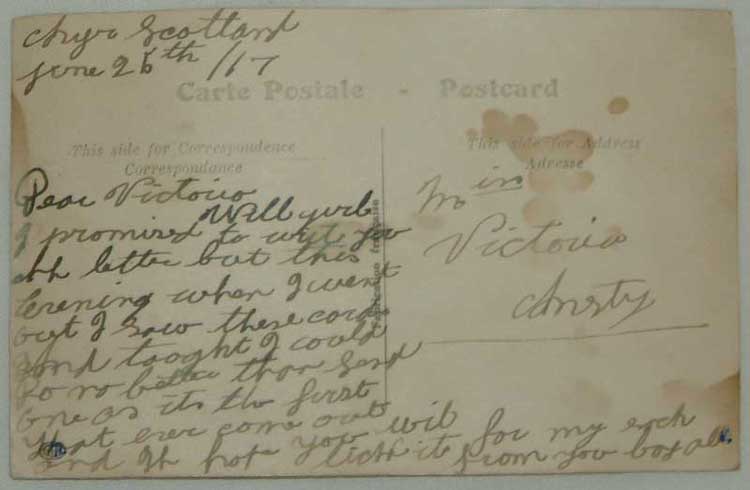 Ayr Scotland
June 26th /17
Carte Postale - Postcard
This side for Correspondence
Correspondance
This side for Address
Adresse
Fabrication française
Dear Victoria
Well girl
I promised to writ you
ah letter but this
evening when I went
out I saw these cards
and taught I could
Do no better than send
one as its the first
that ever come out
and I hope you will
lick it for my
from you boy
Miss
Victoria
Ansty